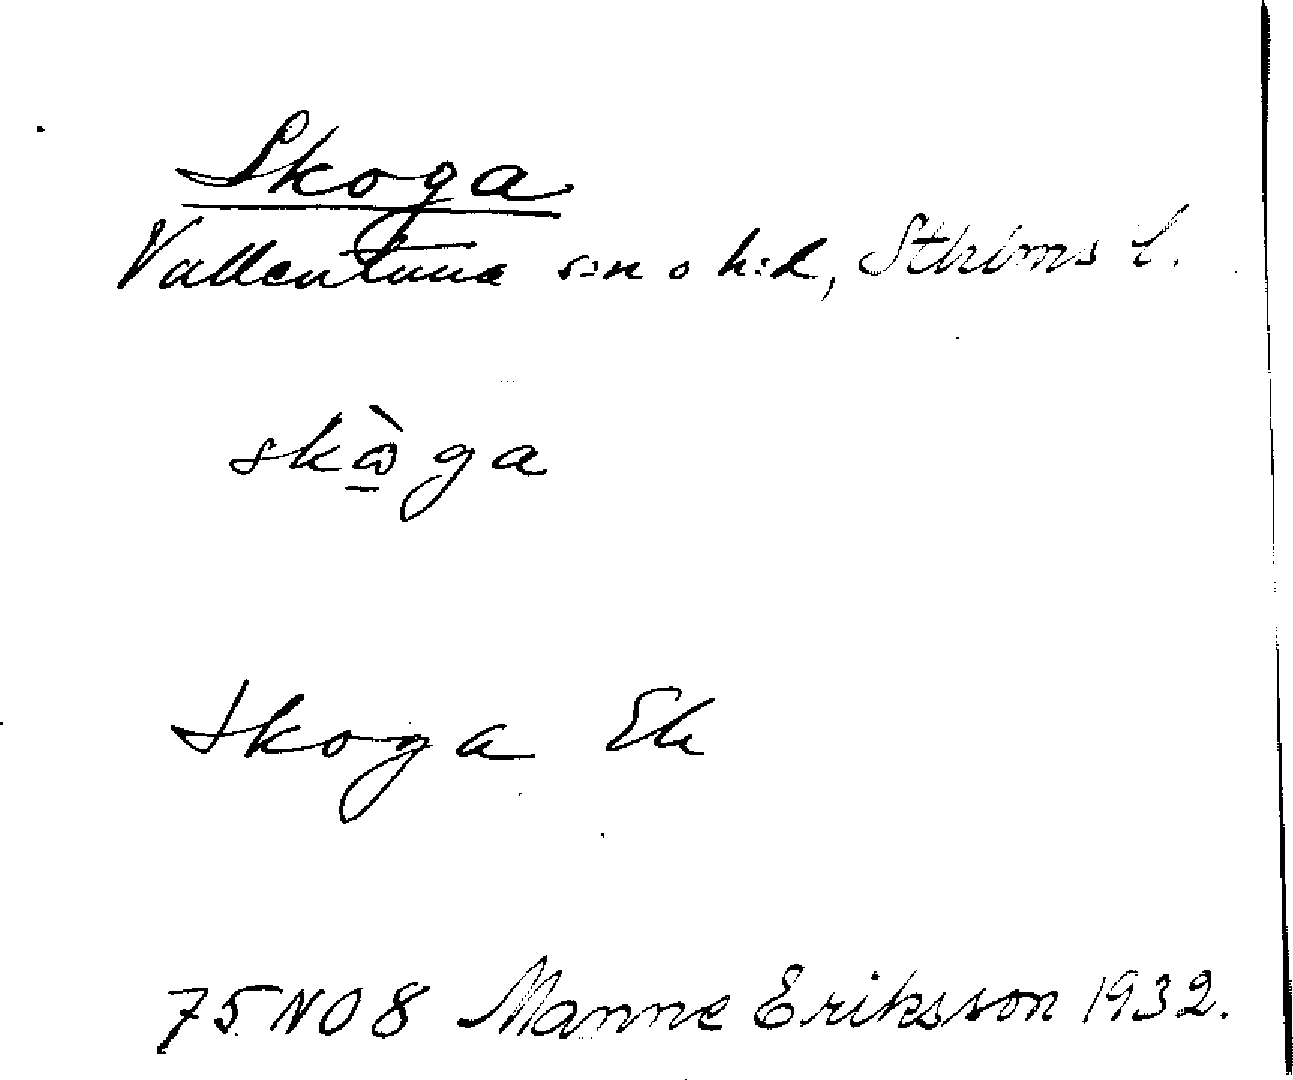 Skoga
Vallentuna s:n o h:d, Sthlms l.
skò̱ga
Skoga Ek
75 NO 8 Manne Eriksson 1932.